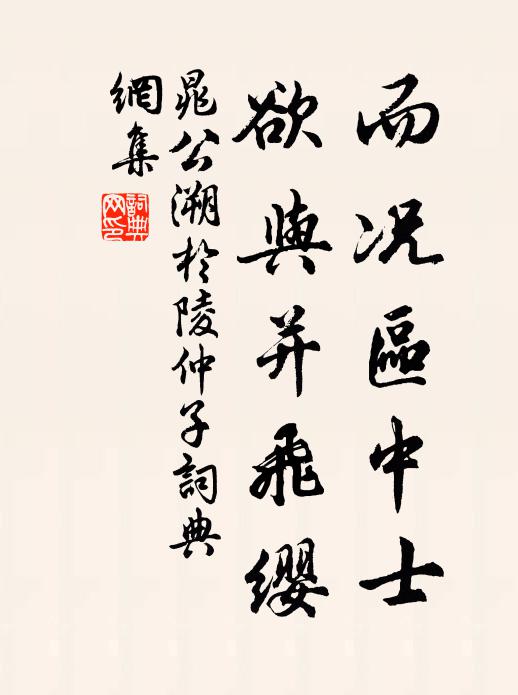 而况區中士
欲與并飛纓
晁公溯於陵仲子詞典
網集
詞典
网印